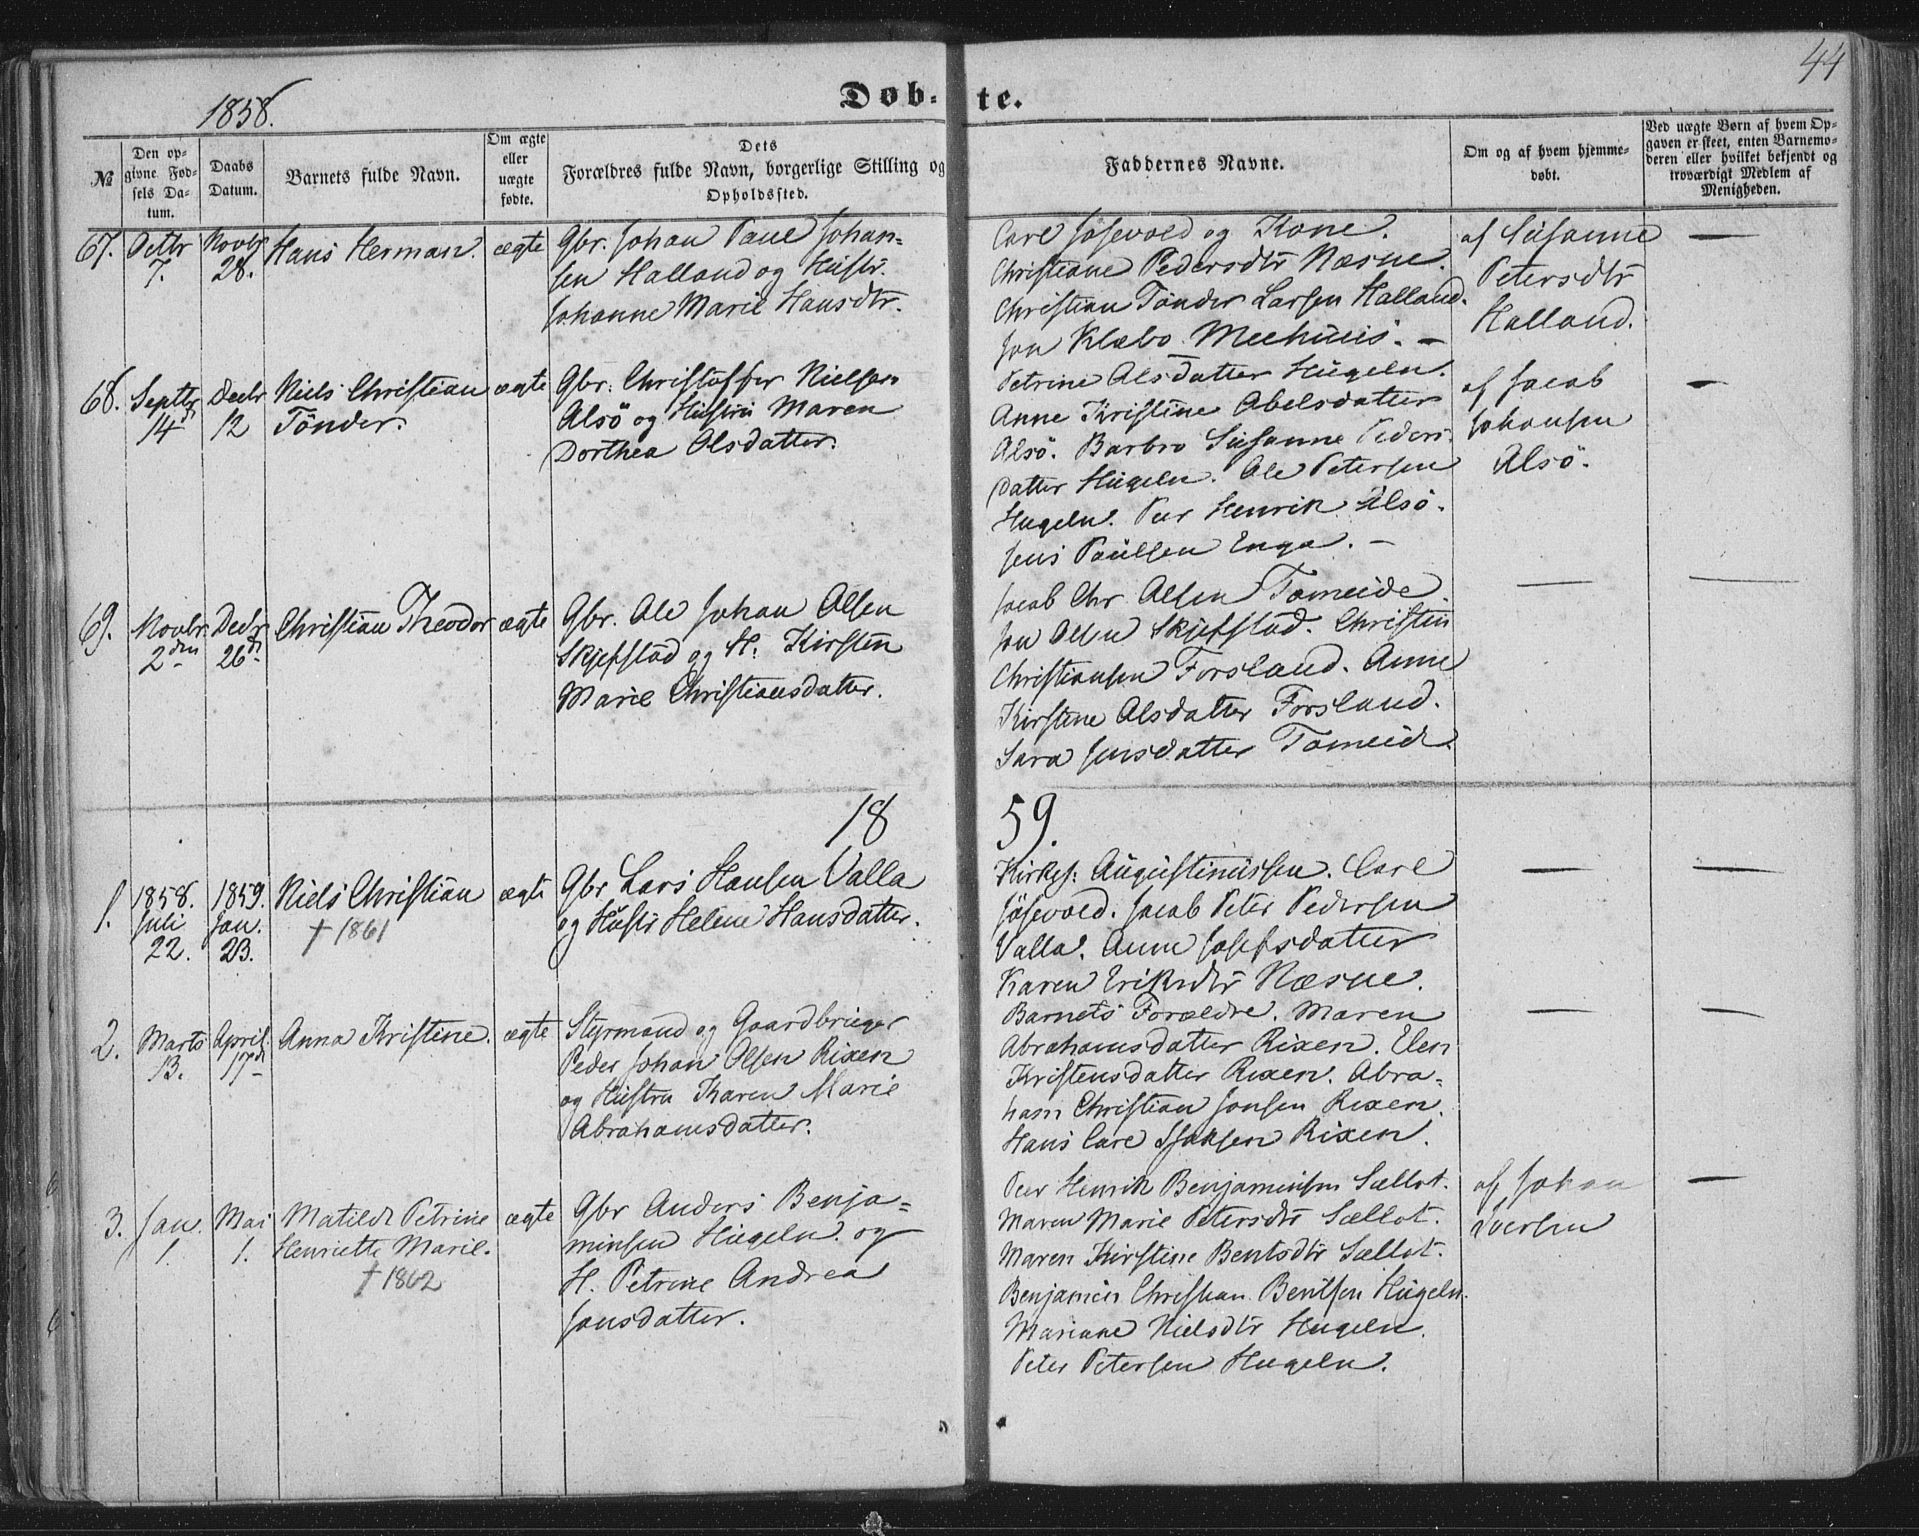 44
1858.
Døb-te.
№
Den op-
givne Fød-
sels Da-
tum.
Daabs
Datum.
Barnets fulde Navn.
Om ægte
eller
uægte
fødte.
Dets
Forældres fulde Navn, borgerlige Stilling og
Opholdssted.
Faddernes Navne.
Om og af hvem hjemme-
døbt.
Ved uægte Børn af hvem Op-
gaven er skeet, enten Barnemo-
deren eller hvilket bekjendt og
troværdigt Medlem af
Menigheden.
67.
Octbr
7.
Novbr
28.
Hans Herman.
ægte
Gbr. Johan Paul Johan-
sen Halland og Hustr.
Johanne Marie Hansdtr.
Carl Jösevold og Kone.
Christiane Pedersdtr Næsne.
Christian Tönder Larsen Halland.
Jon Klæbo Meehuus. —
af Susanne
Petersdtr
Halland.
—
68.
Septbr
14d
Decbr
12
Niels Christian
Tönder.
ægte
Gbr. Christoffer Nielsen
Alsö og Hustru Maren
Dorthea Olsdatter.
Petrine Alsdatter Hugeln.
Anne Kristine Abelsdatter
Alsö. Barbro Susanne Peders-
datter Hugeln. Ole Petersen
Hugeln. Peer Henrik Alsö.
Jens Paulsen Enga. —
af Jacob
Johansen
Alsö.
—
69.
Novbr
2den
Decbr
26d
Christian Theodor
ægte
Gbr. Ole Johan Olsen
Skjefstad og H. Kirsten
Marie Christiansdatter.
Jacob Chr Olsen Tomeide.
Jon Olsen Skjefstad. Christen
Christiansen Forsland. Anne
Kirstine Alsdatter Forsland.
Sara Jensdatter Tomeide.
—
—
1859.
1.
1858.
Juli
22.
1859.
Jan.
23.
Niels Christian
† 1861
ægte
Gbr Lars Hansen Valla
og Hustr Helene Hansdatter.
Kirkes: Augustinussen. Carl
Jösevold. Jacob Peter Pedersen
Valla. Anne Josefsdatter
Karen Eriksdtr Næsne.
—
—
2.
Marts
13.
April
17d
Anna Kristine.
ægte
Styrmand og Gaardbruger
Peder Johan Olsen Rixen
og Hustru Karen Marie
Abrahamsdatter.
Barnets Forældre. Maren
Abrahamsdatter Rixen. Elen
Kristensdatter Rixen. Abra-
ham Christian Jonsen Rixen.
Hans Carl Isaksen Rixen.
—
—
3.
Jan.
1.
Mai
1.
Matilde Petrine
Henriette Marie.
† 1862
ægte
Gbr Anders Benja-
minsen Hugeln. og
H. Petrine Andrea
Jonsdatter.
Peer Henrik Benjaminsen Sællot.
Maren Marie Petersdtr Sællot.
Maren Kirstine Bentsdtr Sællot.
Benjamin Christian Bentsen Hugeln.
Marianne Nielsdtr Hugeln.
Peter Petersen Hugeln.
af Johan
Iversen
—